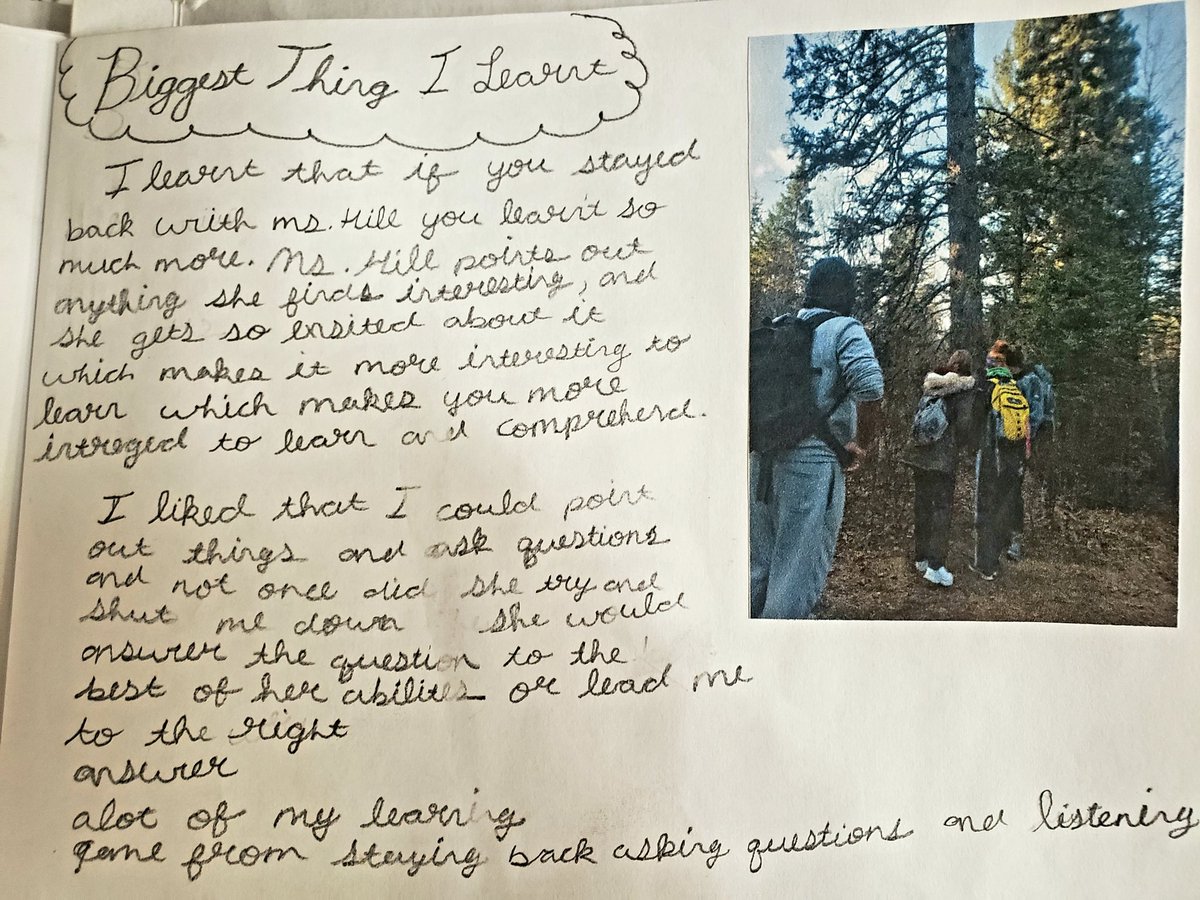 Biggest Thing I Learnt
I learnt that if you stayed
back with ms. Hill you learnt so
much more. Ms. Hill points out
anything she finds interesting, and
she gets so ensited about it
which makes it more interesting to
learn which makes you more
intreged to learn and comprehend.
I liked that I could point
out things and ask questions
and not once did she try and
shut me down she would
answer the question to the
best of her abilites or lead me
to the right
answer
alot of my learning
came from staying back asking questions and listening